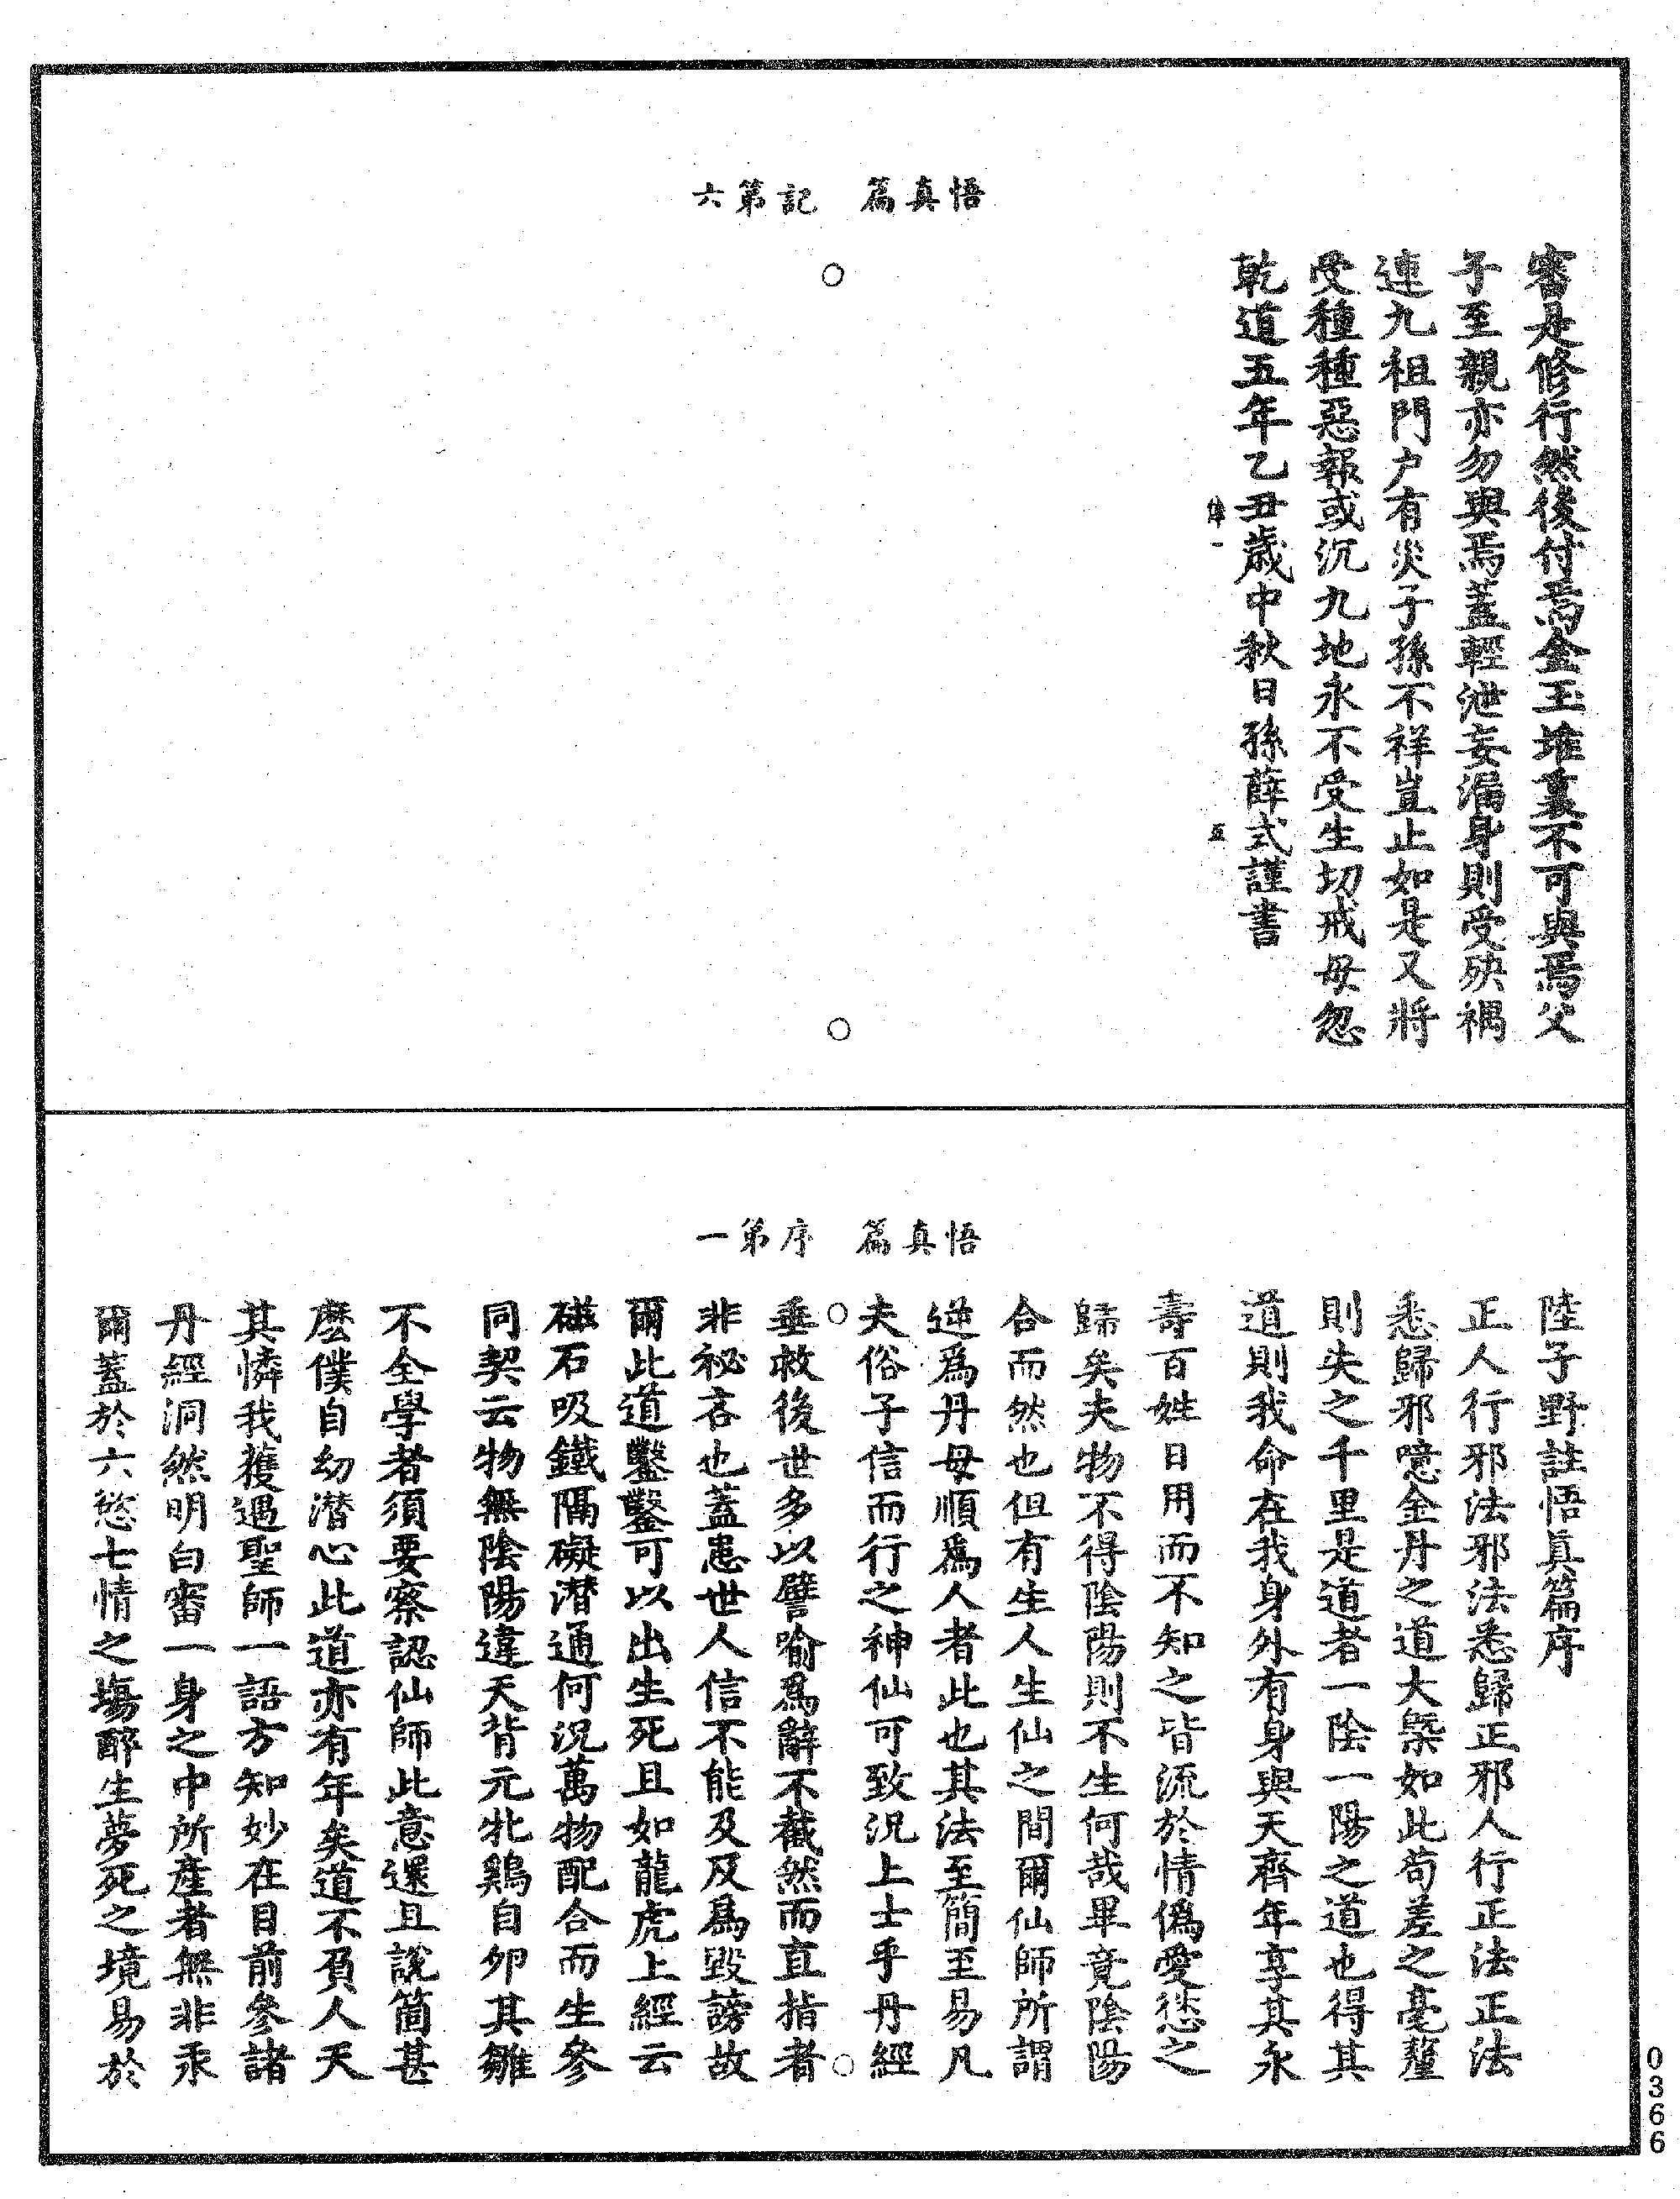 悟真篇　記第六
審是修行然後付焉金玉堆裏不可與焉父
子至親亦勿與焉蓋輕泄妄漏身則受殃禍
連九祖門户有災子孫不祥豈止如是又將
受種種惡報或沉九地永不受生切戒毋忽
乾道五年乙丑歲中秋日孫薛式謹書
悟真篇　序第一
陸子野註悟眞篇序
正人行邪法邪法悉歸正邪人行正法正法
悉歸邪噫金丹之道大槩如此苟差之毫釐
則失之千里是道者一陰一陽之道也得其
道則我命在我身外有身與天齊年享其永
壽百姓日用而不知之皆流於情僞愛慾之
歸矣夫物不得陰陽則不生何哉畢竟陰陽
合而然也但有生人生仙之間爾仙師所謂
逆爲丹母順爲人者此也其法至簡至易凡
夫俗子信而行之神仙可致況上士乎丹經
垂救後世多以譬喻爲辭不截然而直指者
非祕吝也蓋患世人信不能及反爲毀謗故
爾此道鑿鑿可以出生死且如龍虎上經云
磁石吸鐵隔礙潛通何況萬物配合而生參
同契云物無陰陽違天背元牝鷄自卵其雛
不全學者須要察認仙師此意還且說箇甚
麽僕自幼潛心此道亦有年矣道不負人天
其憐我獲遇聖師一語方知妙在目前參諸
丹經洞然明白審一身之中所產者無非汞
爾蓋於六慾七情之塲醉生夢死之境易於
0366